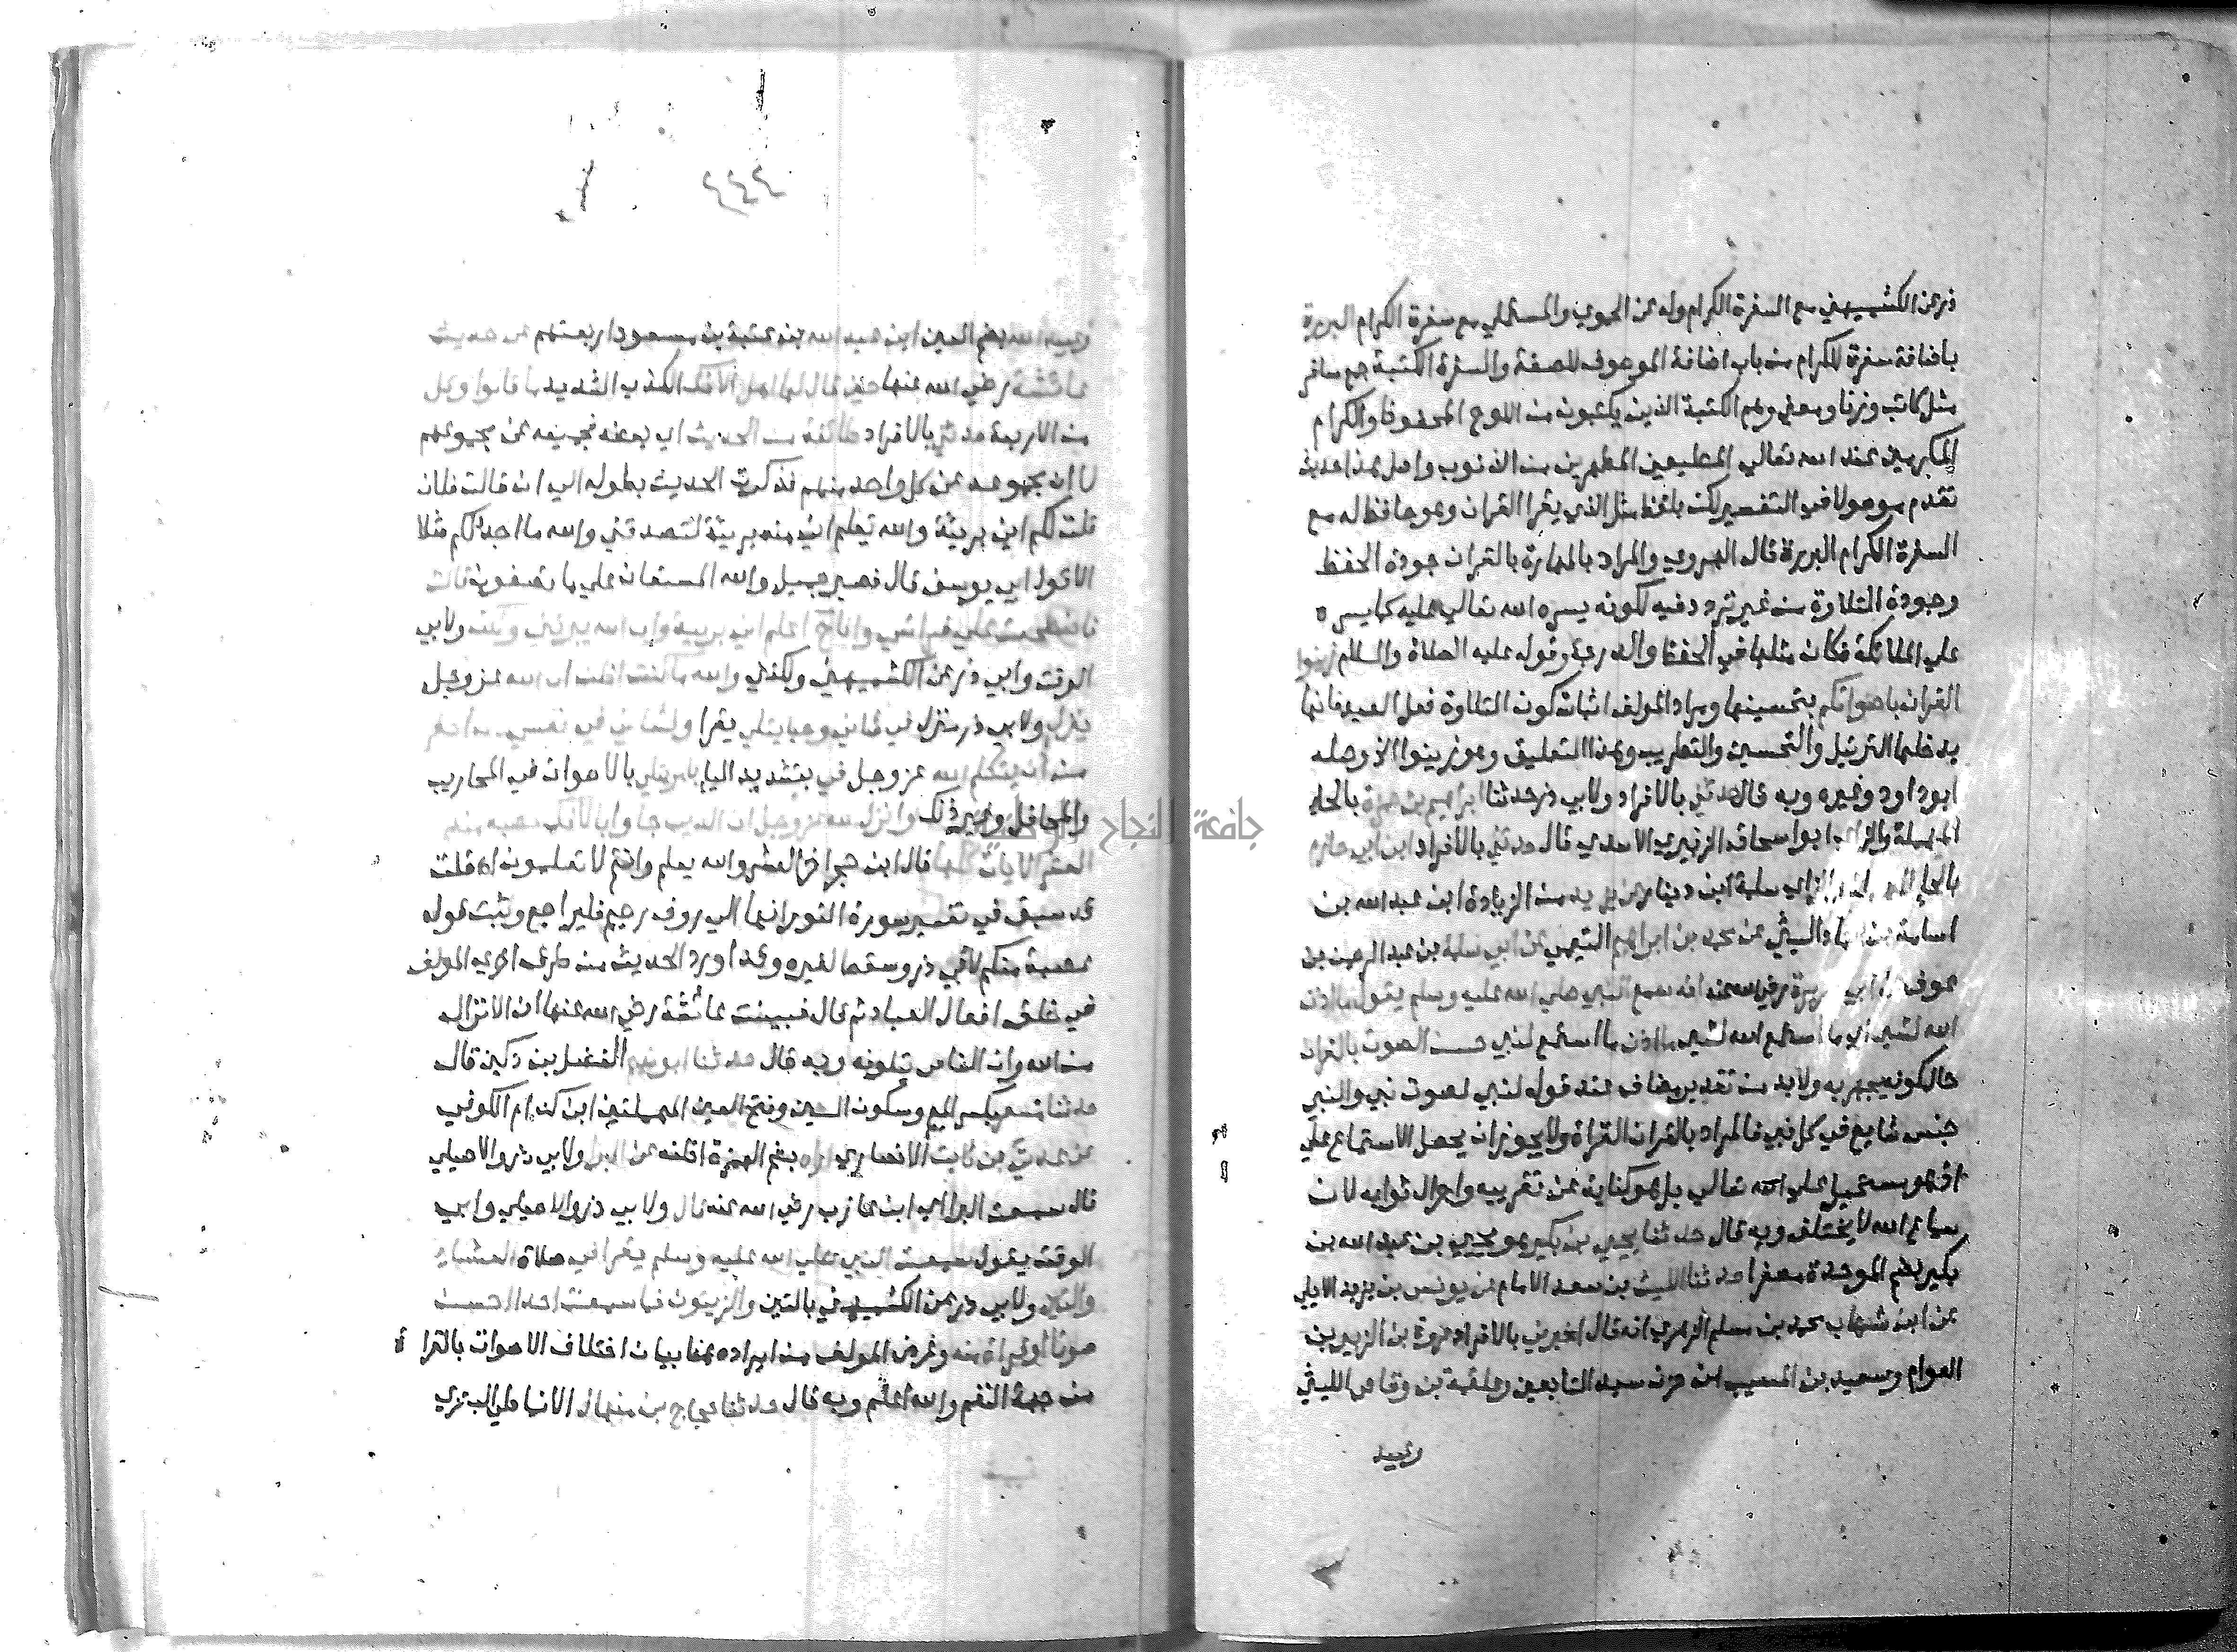 ذر عن الكشميهني مع السفرة الكرام وله عن الحموي والمستملي مع سفرة الكرام البررة
باضافة سفرة للكرام من باب اضافة الموصوف للصفة والسفرة الكتبة جمع سافر
مثل كاتب وزنا ومعني وهم الكتبة الذين يكتبون من اللوح المحفوظ والكرام
المكرمين عند الله تعالي المطيعين المطهرين من الذنوب واصل هذا حديث
تقدم موصولا في التفسير لكن بلفظ مثل الذي يقرا القران وهو حافظ له مع
السفرة الكرام البررة قال الهروي والمراد بالمهارة بالقران جودة الحفظ
وجودة التلاوة من غير تردد فيه لكونه يسره الله تعالي عليه كما يسره
علي الملائكة فكان مثلها في الحفظ والدرجة وقوله عليه الصلاة والسلام زينوا
القران باصواتكم بتحسينها ومراد المولف اثبات كون التلاوة فعل العبد فانها
يدخلها الترتيل والتحسين والتطريب وهذا التعليق وهو زينوا الخ وصله
ابو داود وغيره وبه قال حدثني بالافراد ولابي ذر حدثنا ابراهيم بن حمزة بالحاء
المهملة والزاي ابو اسحاق الزبيري الاسدي قال حدثني بالافراد ابن ابي حازم
بالحاء المهملة والزاي سلمة ابن دينار عن يزيد من الزيادة ابن عبد الله بن
اسامة بن الهاد الليثي عن محمد بن ابراهيم التيمي عن ابي سلمة بن عبد الرحمن بن
عوف عن ابي هريرة رضي الله عنه انه سمع النبي صلي الله عليه وسلم يقول ما اذن
الله لشيء اي ما استمع الله لشيء ما اذن ما استمع لنبي حسن الصوت بالقران
حال كونه يجهر به ولابد من تقدير مضاف عند قوله لنبي لصوت نبي والنبي
جنس شايع في كل نبي فالمراد بالقران القراة ولا يجوز ان يحمل الاستماع علي
اذ هو مستحيل علي الله تعالي بل هو كناية عن تقريبه واجزال ثوابه لان
سماع الله لا يختلف وبه قال حدثنا يحيي بن بكير هو يحيي بن عبد الله بن
بكير بضم الموحدة مصغرا حدثنا الليث بن سعد الامام عن يونس بن يزيد الايلي
عن ابن شهاب محمد بن مسلم الزهري انه قال اخبرني بالافراد عروة بن الزبير بن
العوام وسعيد بن المسيب ابن حزن سيد التابعين وعلقمة بن وقاص الليثي
وعبيد
٤٤٤
وعبيد الله بضم العين ابن عبد الله بن عتبة بن مسعود اربعتهم عن حديث
عائشة رضي الله عنها حين قال لها اهل الافك الكذب الشديد ما قالوا وكل
من الاربعة حدثني بالافراد طائفة من الحديث اي بعضه فجميعه عن مجموعهم
لا ان مجموعه عن كل واحد منهم فذكرت الحديث بطوله الي ان قالت فلئن
قلت لكم اني بريئة والله يعلم اني منه بريئة لتصدقني والله ما اجد لكم مثلا
الا قول ابي يوسف قال فصبر جميل والله المستعان علي ما تصفون قالت
فاضطجعت علي فراشي وانا اعلم اني بريئة وان الله يبرئني ولكن ولابي
الوقت وابي ذر عن الكشميهني ولكني والله ما كنت اظن ان الله عز وجل
ينزل ولابي ذر منزل في شاني وحيا يتلي يقرا ولشاني في نفسي
من ان يتكلم الله عز وجل في بتشديد اليا بامر يتلي بالاصوات في المحاريب
والمحافل وغير ذلك وانزل الله عز وجل ان الذين جاوا بالافك عصبة منكم
العشر الايات كلها قال ابن حجر اخر العشر والله يعلم وانتم لا تعلمون اه قلت
قد سبق في تفسير سورة النور انها الي روف رحيم فليراجع وثبت قوله
عصبة منكم لابي ذر وسقط لغيره وقد اورد الحديث من طرق اخري المولف
في خلق افعال العباد ثم قال فبينت عائشة رضي الله عنها ان الانزال
من الله وان الناس يتلونه وبه قال حدثنا ابو نعيم الفضل بن دكين قال
حدثنا مسعر بكسر الميم وسكون السين وفتح العين المهملتين ابن كدام الكوفي
عن عدي بن ثابت الانصاري اراه بضم الهمزة اظنه عن البرا ولابي ذر والاصيلي
قال سمعت البرا اي ابن عازب رضي الله عنه قال ولابي ذر والاصيلي وابي
الوقت يقول سمعت النبي صلي الله عليه وسلم يقرا في صلاة العشاء
والتين ولابي ذر عن الكشميهني بالتين والزيتون فما سمعت احدا احسن
صوتا او قراة منه وغرض المولف من ايراده هنا بيان اختلاف الاصوات بالقراة
من جهة النغم والله اعلم وبه قال حدثنا حجاج بن منهال الانماطي البصري
جامعة النجاح الوطنية